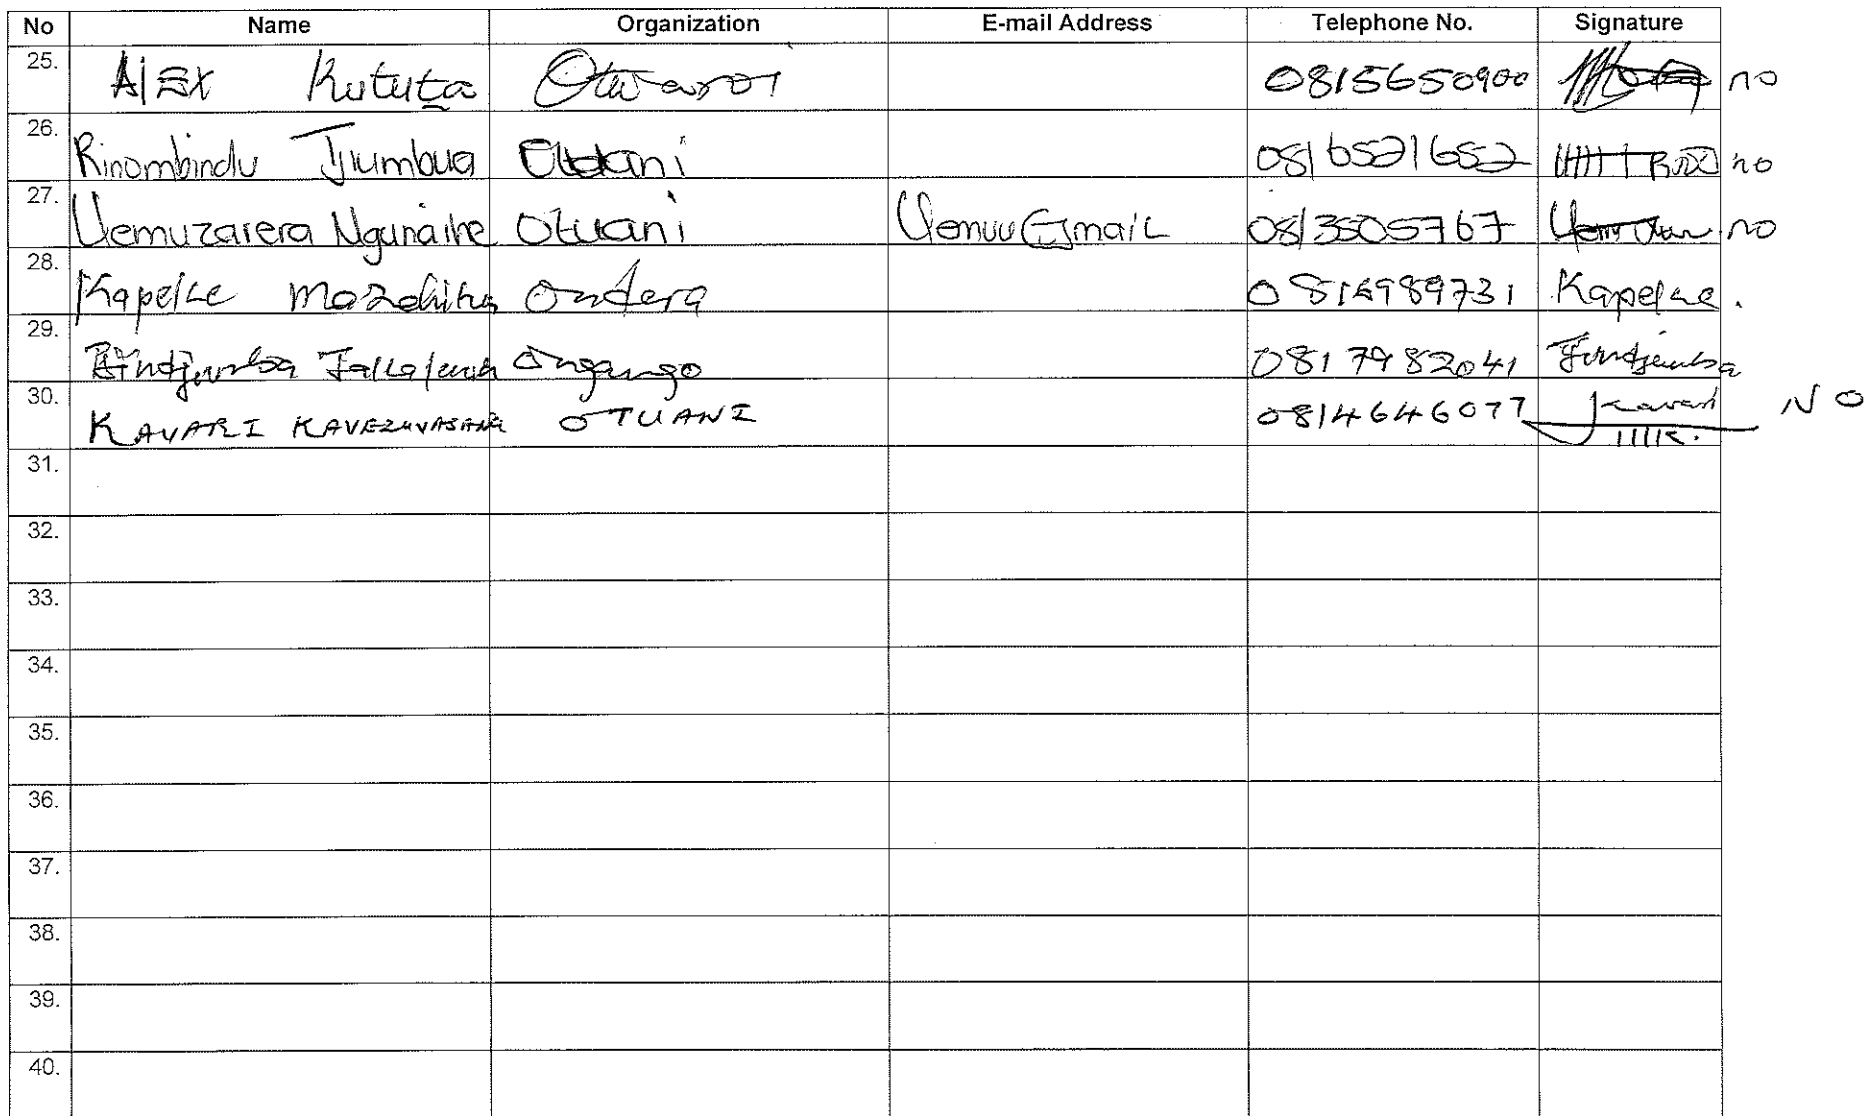 No Name Organization E-mail Address Telephone No. Signature
25. Alex Kututa 0815650900 no
26. Rinombindu Tjiumbua Otuani 0816521652 no
27. Uemuzarera Ngunaihe Otuani Uemuu Gmail 0813505767 no
28. Kapelke Ondera 0814989731 Kapelke.
29. Ongango 0817982041
30. KAVARI OTUANI 0814646077 Kavari NO
31.
32.
33.
34.
35.
36.
37.
38.
39.
40.